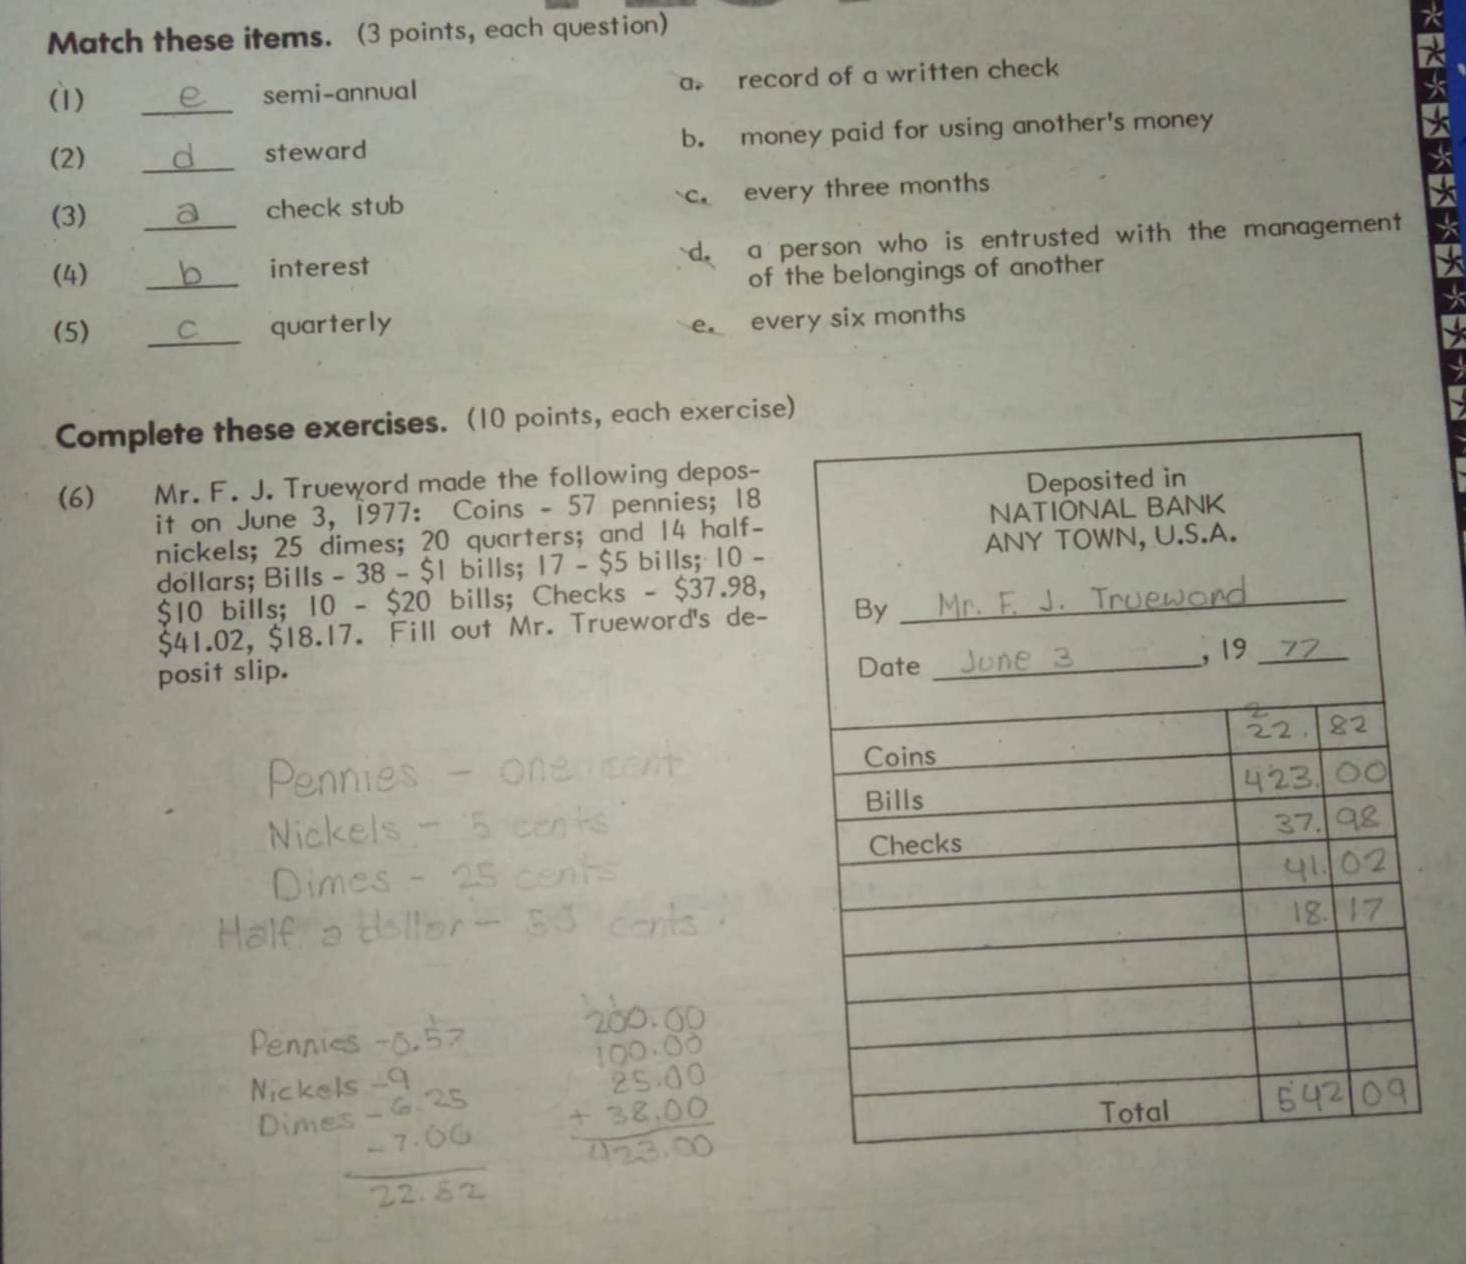 Match these items. (3 points, each question)
(1) e semi-annual
a. record of a written check
(2) d steward
b. money paid for using another's money
(3) a check stub
c. every three months
(4) b interest
d. a person who is entrusted with the management
of the belongings of another
(5) c quarterly
e. every six months
Complete these exercises. (10 points, each exercise)
(6) Mr. F. J. Trueword made the following depos-
it on June 3, 1977: Coins - 57 pennies; 18
nickels; 25 dimes; 20 quarters; and 14 half-
dollars; Bills - 38 - $1 bills; 17 - $5 bills; 10 -
$10 bills; 10 - $20 bills; Checks - $37.98,
$41.02, $18.17. Fill out Mr. Trueword's de-
posit slip.
Deposited in
NATIONAL BANK
ANY TOWN, U.S.A.
By Mr. F. J. Trueword
Date June 3, 19 77
Coins 22. 82
Bills 423. 00
Checks 37. 98
41. 02
18. 17
Total 542 09
Pennies - one cent
Nickels - 5 cents
Dimes - 25 cents
Half a dollar - 50 cents
Pennies - 0.57
Nickels - 9
Dimes - 6.25
- 7.00
22.82
200.00
100.00
85.00
+ 38.00
423.00